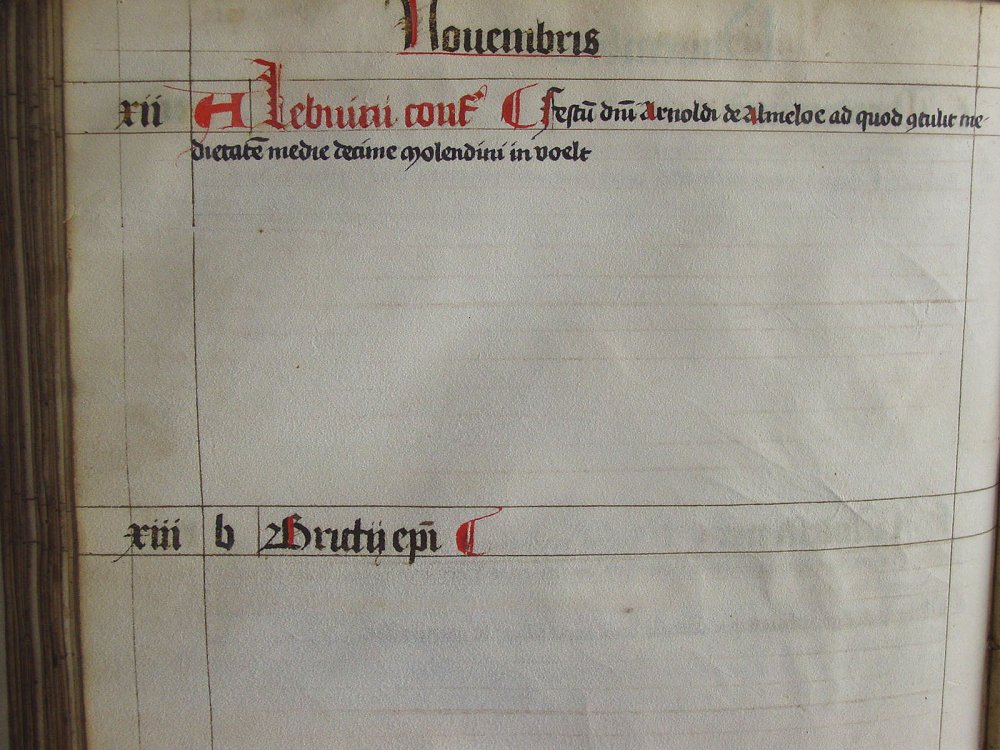 Nouembris
xii A Lebuini conf' ¶ festū dn̄i Arnoldi de Almeloe ad quod ꝯtulit me-
dietatē medie decime molendini in voelt
xiii b Brictij ep̄i ¶